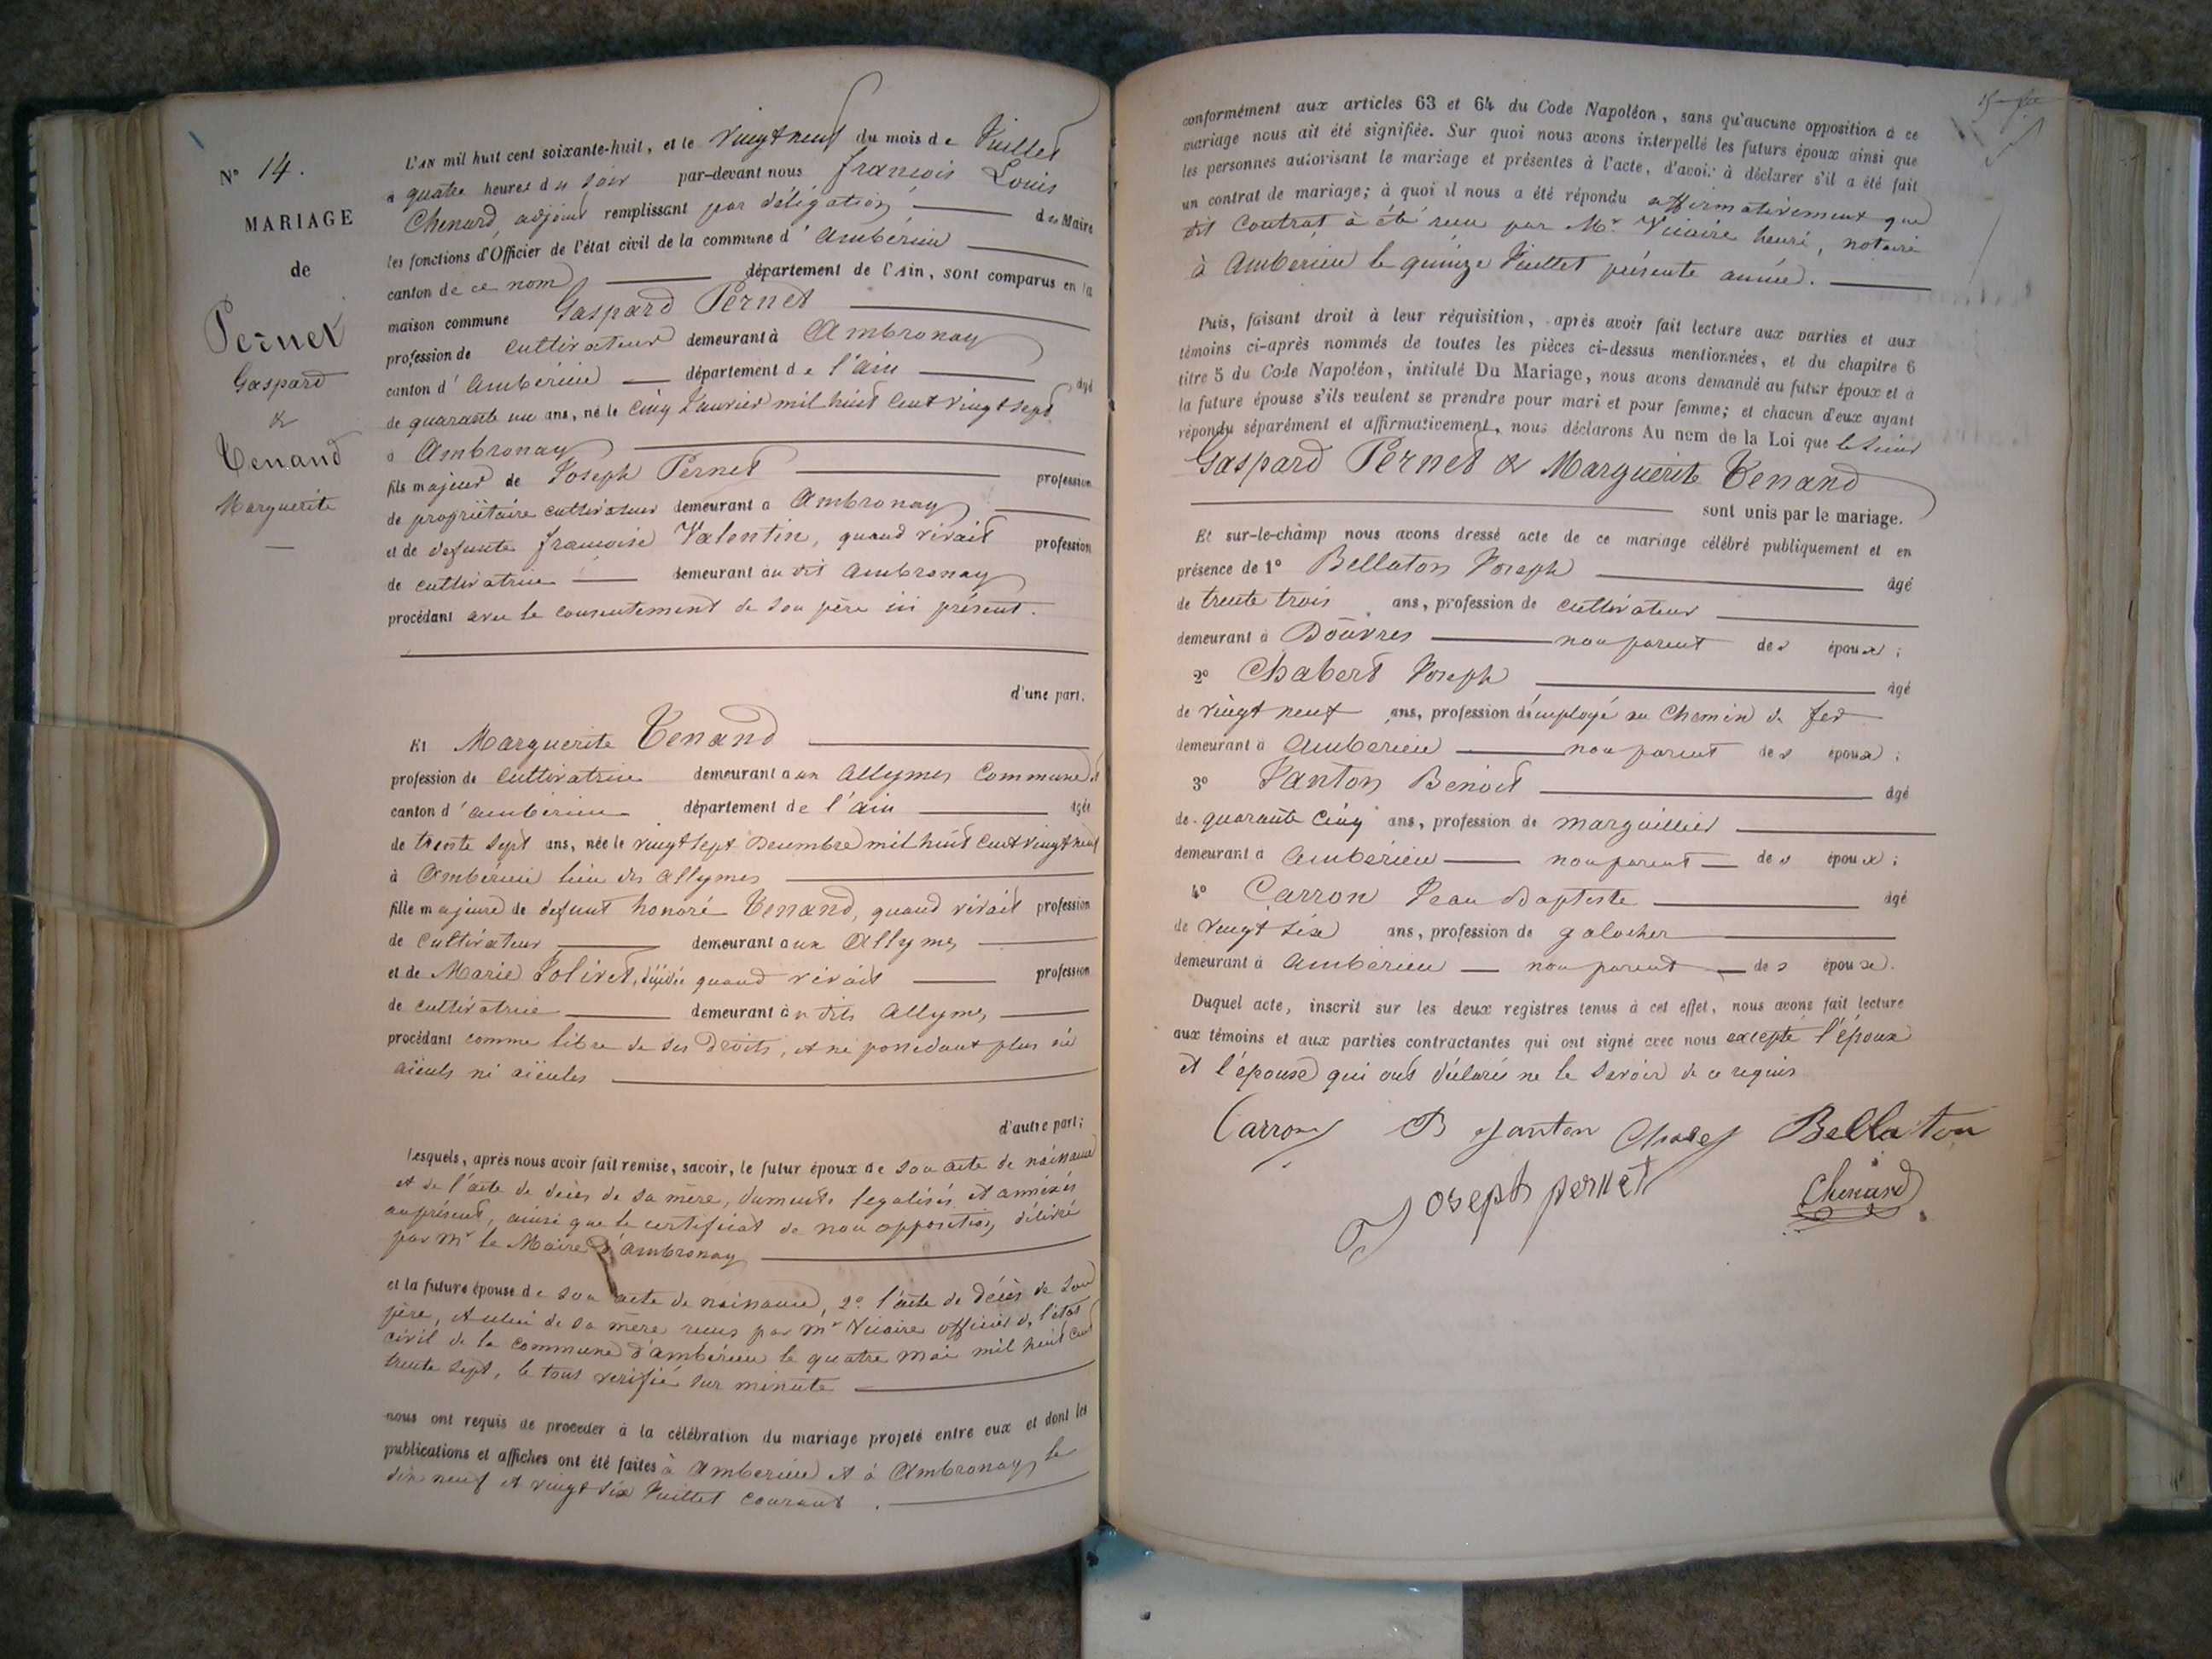 N° 14.
MARIAGE
de
Pernet
Gaspard
&
Tenand
Marguerite
L'AN mil huit cent soixante-huit, et le vingt neuf du mois de Juillet
à quatre heures du soir par-devant nous françois Louis
Chenard, adjoint remplissant par délégation du Maire
les fonctions d'Officier de l'état civil de la commune d'Ambérieu
canton de ce nom département de l'Ain, sont comparus en la
maison commune Gaspard Pernet
profession de cultivateur demeurant à Ambronay
canton d'Ambérieu département de l'ain âgé
de quarante un ans, né le cinq Janvier mil huit cent vingt sept
à Ambronay
fils majeur de Joseph Pernet profession
de propriétaire cultivateur demeurant à Ambronay
et de defunte françoise Valentin, quand vivait profession
de cultivatrice demeurant au dit Ambronay
procédant avec le consentement de son père ici présent.
d'une part.
Et Marguerite Tenand
profession de cultivatrice demeurant aux Allymes Commune et
canton d'ambérieu département de l'ain âgée
de trente sept ans, née le vingt sept Decembre mil huit cent vingt neuf
à Ambérieu lieu des allymes
fille majeure de defunt honoré Tenand, quand vivait profession
de cultivateur demeurant aux Allymes
et de Marie Jolivet, décédée quand vivait profession
de cultivatrice demeurant aux dits Allymes
procédant comme libre de ses droits, et ne possedant plus ni
aïeuls ni aïeules
d'autre part;
Lesquels, après nous avoir fait remise, savoir, le futur époux de son acte de naissance
et de l'acte de décès de sa mère, dument legalisés et annexés
au présent, ainsi que le certificat de non opposition délivré
par Mr le Maire d'Ambronay
et la future épouse de son acte de naissance, 2° l'acte de décès de son
père, et celui de sa mère reçus par Mr Vicaire officier de l'état
civil de la commune d'ambérieu le quatre mai mil huit cent
trente sept, le tout verifié sur minute
nous ont requis de procéder à la célébration du mariage projeté entre eux et dont les
publications et affiches ont été faites à Ambérieu et à Ambronay le
dix neuf et vingt six Juillet courant.
conformément aux articles 63 et 64 du Code Napoléon, sans qu'aucune opposition à ce
mariage nous ait été signifiée. Sur quoi nous avons interpellé les futurs époux ainsi que
les personnes autorisant le mariage et présentes à l'acte, d'avoir à déclarer s'il a été fait
un contrat de mariage; à quoi il nous a été répondu affirmativement que
dit Contrat à été recu par Mr Vicaire henri, notaire
à Ambérieu le quinze Juillet présente année.
Puis, faisant droit à leur réquisition, après avoir fait lecture aux parties et aux
témoins ci-après nommés de toutes les pièces ci-dessus mentionnées, et du chapitre 6
titre 5 du Code Napoléon, intitulé Du Mariage, nous avons demandé au futur époux et à
la future épouse s'ils veulent se prendre pour mari et pour femme; et chacun d'eux ayant
répondu séparément et affirmativement, nous déclarons Au nom de la Loi que le sieur
Gaspard Pernet & Marguerite Tenand
sont unis par le mariage.
Et sur-le-champ nous avons dressé acte de ce mariage célébré publiquement et en
présence de 1° Bellaton Joseph âgé
de trente trois ans, profession de cultivateur
demeurant à Douvres non parent des époux;
2° Chabert Joseph âgé
de vingt neuf ans, profession d'employé au Chemin de fer
demeurant à Ambérieu non parent des époux;
3° Janton Benoit âgé
de quarante cinq ans, profession de marguillier
demeurant à Ambérieu non parent des époux;
4° Carron Jean Baptiste âgé
de vingt six ans, profession de galocher
demeurant à Ambérieu non parent des époux.
Duquel acte, inscrit sur les deux registres tenus à cet effet, nous avons fait lecture
aux témoins et aux parties contractantes qui ont signé avec nous excepté l'époux
et l'épouse qui ont déclaré ne le savoir de ce requis
Carron B Janton Bellaton
Joseph pernet Chenard